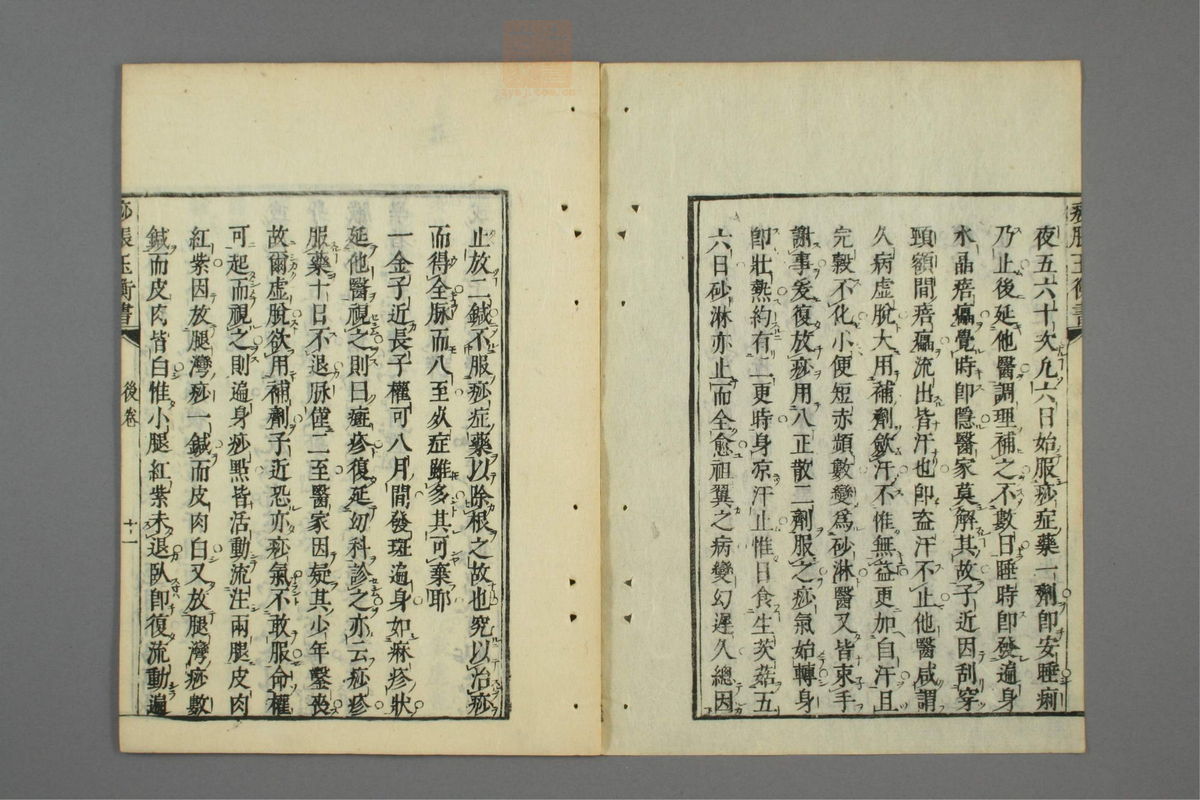 痧脹玉衡書
夜五六十次九六日始服痧症藥一劑卽安睡痢
乃止後延他醫調理補之不數日睡時卽發遍身
水晶㾦㿔覺時卽隱醫家莫解其故子近因刮穿
頸額間㾦㿔流出皆汗也卽盗汗不止他醫咸謂
久病虛脫大用補劑歛汗不惟無益更加自汗且
完穀不化小便短赤頻數變爲砂淋醫又皆束手
謝事爰復放痧用八正散二劑服之痧氣始轉身
卽壯熱約有二更時身凉汗止惟日食生茨菇五
六日砂淋亦止而全愈祖翼之病變幻遲久總因
止放二鍼不服痧症藥以除根之故也究以治痧
而得全脉而八至㱏症雖多其可棄耶
一金子近長子權可八月間發斑遍身如痳疹狀
延他醫視之則曰㿀疹復延幼科診之亦云痧疹
服藥十日不退脉僅二至醫家因疑其少年鑿喪
故爾虛脫欲用補劑子近恐亦痧氣不敢服命權
可起而視之則遍身痧點皆活動流注兩腿皮肉
紅紫因放腿灣痧一鍼而皮肉白又放腿灣痧數
鍼而皮肉皆白惟小腿紅紫未退臥卽復流動遍
痧脹玉衡書
後卷
十一